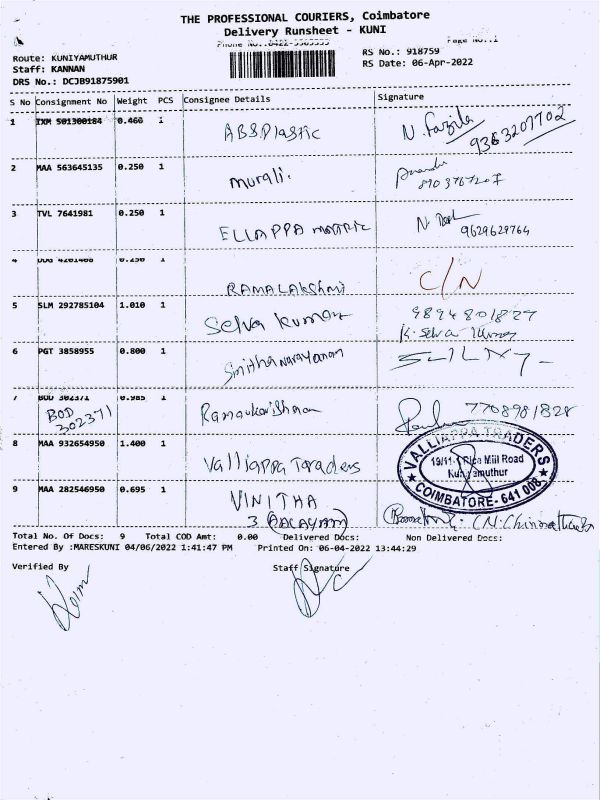 THE PROFESSIONAL COURIERS, Coimbatore
Delivery Runsheet - KUNI
Page No.:1
Route: KUNIYAMUTHUR
Staff: KANNAN
DRS No.: DCJB91875901
RS No.: 918759
RS Date: 06-Apr-2022
S No Consignment No Weight PCS Consignee Details Signature
1 IXM 501300184 0.460 1 ABS Plastic N. Fazila 9363207702
2 MAA 563645135 0.250 1 murali.
3 TVL 7641981 0.250 1 ELLAPPA matric N. 9629629764
4 0.250 1 RAMALAKShmi C/N
5 SLM 292785104 1.010 1 Selva kumar 9894801827
K. Selva Kumar
6 PGT 3858955 0.800 1 Smitha narayanan
7 BOD 302371 0.985 1 7708981828
BOD
302371
8 MAA 932654950 1.400 1 Valliappa Traders
VALLIAPPA TRADERS
19/11-1 Rice Mill Road
Kuniyamuthur
COIMBATORE - 641 008.
9 MAA 282546950 0.695 1 VINITHA
3
Total No. Of Docs: 9 Total COD Amt: 0.00 Delivered Docs: Non Delivered Docs:
Entered By :MARESKUNI 04/06/2022 1:41:47 PM Printed On: 06-04-2022 13:44:29
Verified By Staff Signature